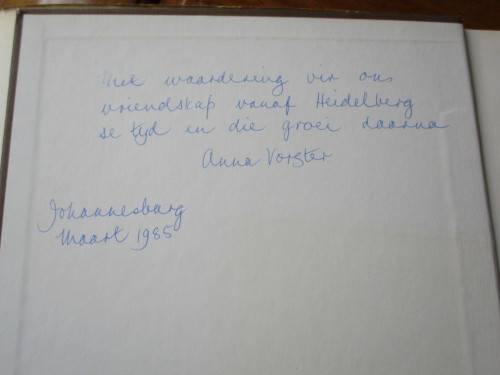 met waardering vir ons
vriendskap vanaf Heidelberg
se tyd en die groei daarna
Anna Vorster
Johannesburg
Maart 1985